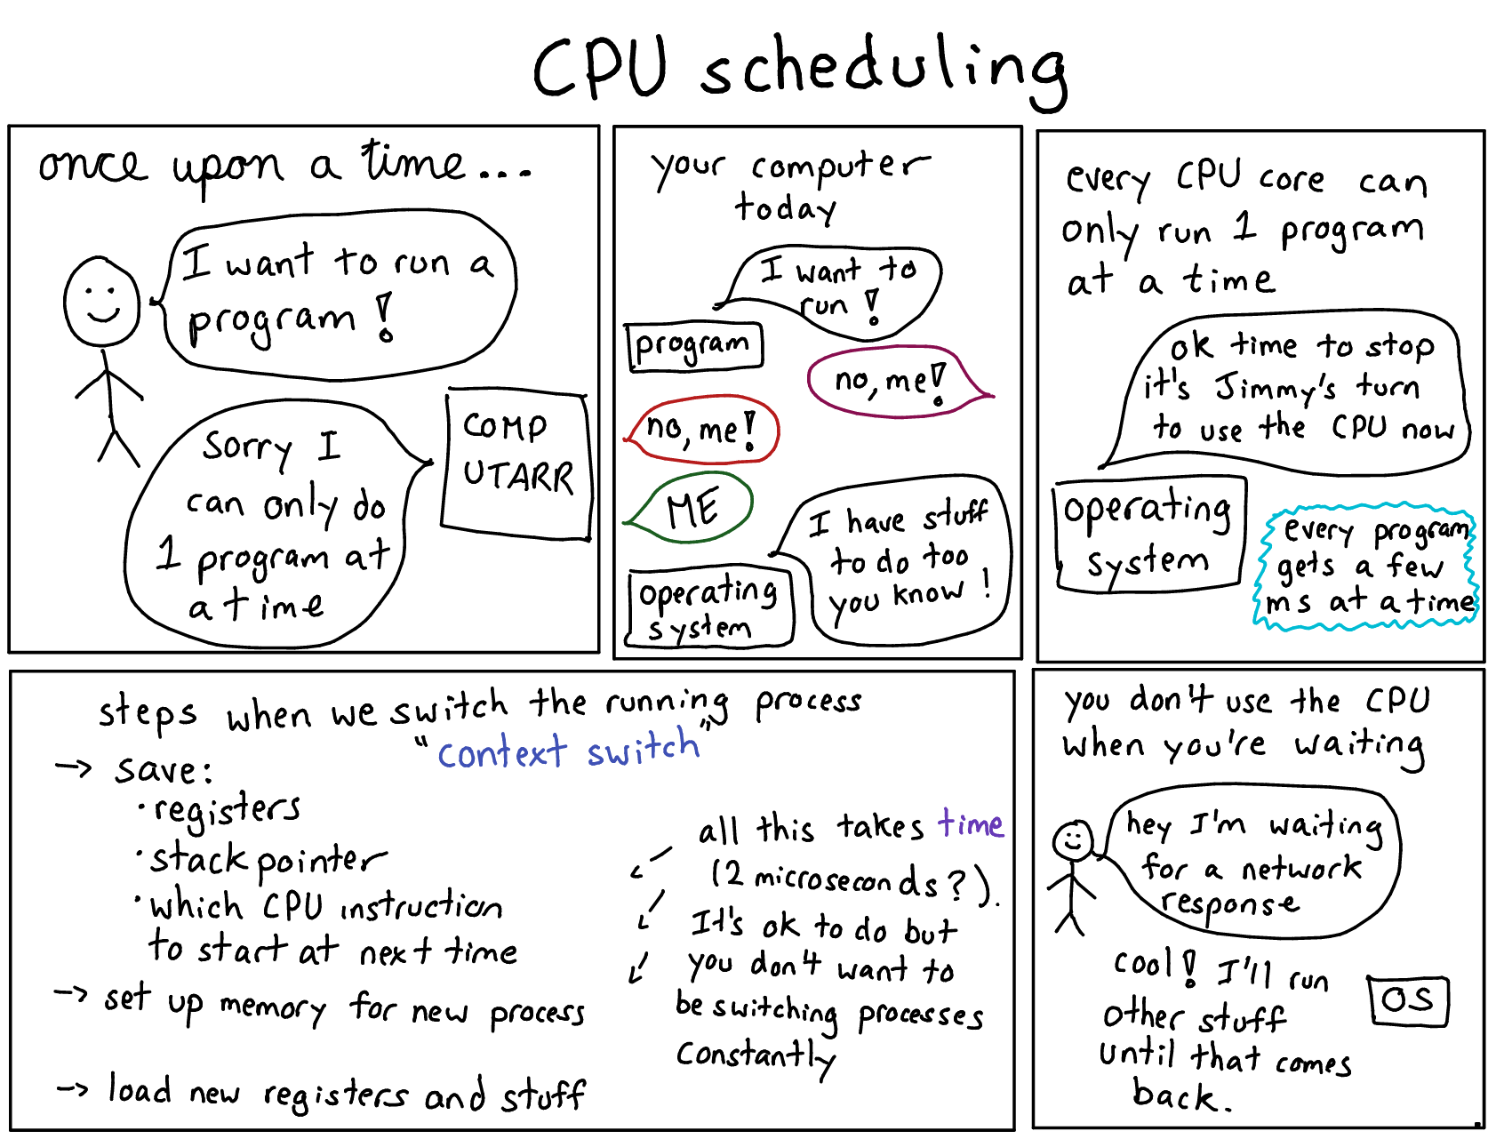 CPU scheduling
once upon a time...
I want to run a
program!
COMP
UTARR
Sorry I
can only do
1 program at
a time
your computer
today
I want to
run!
program
no, me!
no, me!
ME
I have stuff
to do too
you know!
operating
system
every CPU core can
only run 1 program
at a time
ok time to stop
it's Jimmy's turn
to use the CPU now
operating
system
every program
gets a few
ms at a time
steps when we switch the running process
"context switch"
→ save:
· registers
· stack pointer
· which CPU instruction
to start at next time
→ set up memory for new process
→ load new registers and stuff
all this takes time
(2 microseconds?).
It's ok to do but
you don't want to
be switching processes
constantly
you don't use the CPU
when you're waiting
hey I'm waiting
for a network
response
cool! I'll run
other stuff
until that comes
back.
OS